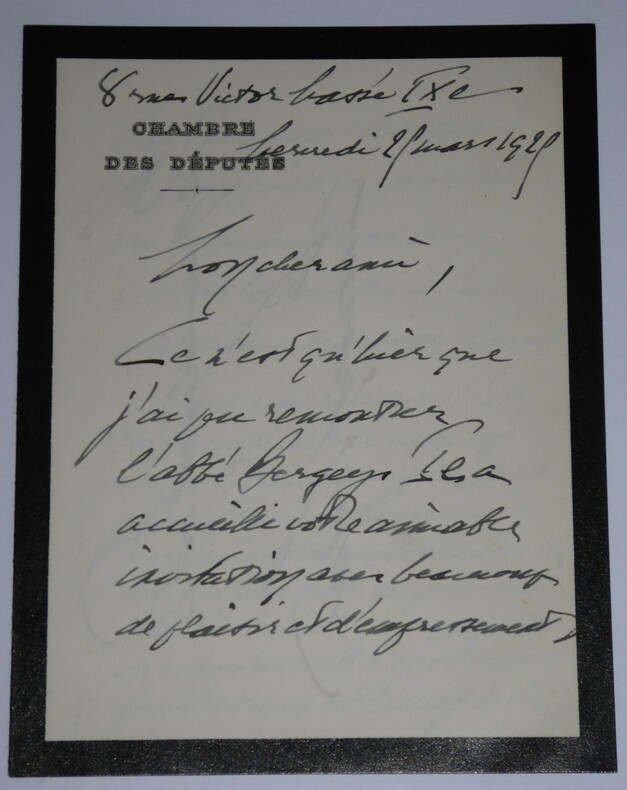 8 rue Victor Massé IXe
CHAMBRE
DES DÉPUTÉS
Mercredi 25 mars 1925
Mon cher ami,
Ce n'est qu'hier que
j'ai pu rencontrer
l'abbé Bergey. Il a
accueilli votre aimable
invitation avec beaucoup
de plaisir et d'empressement,